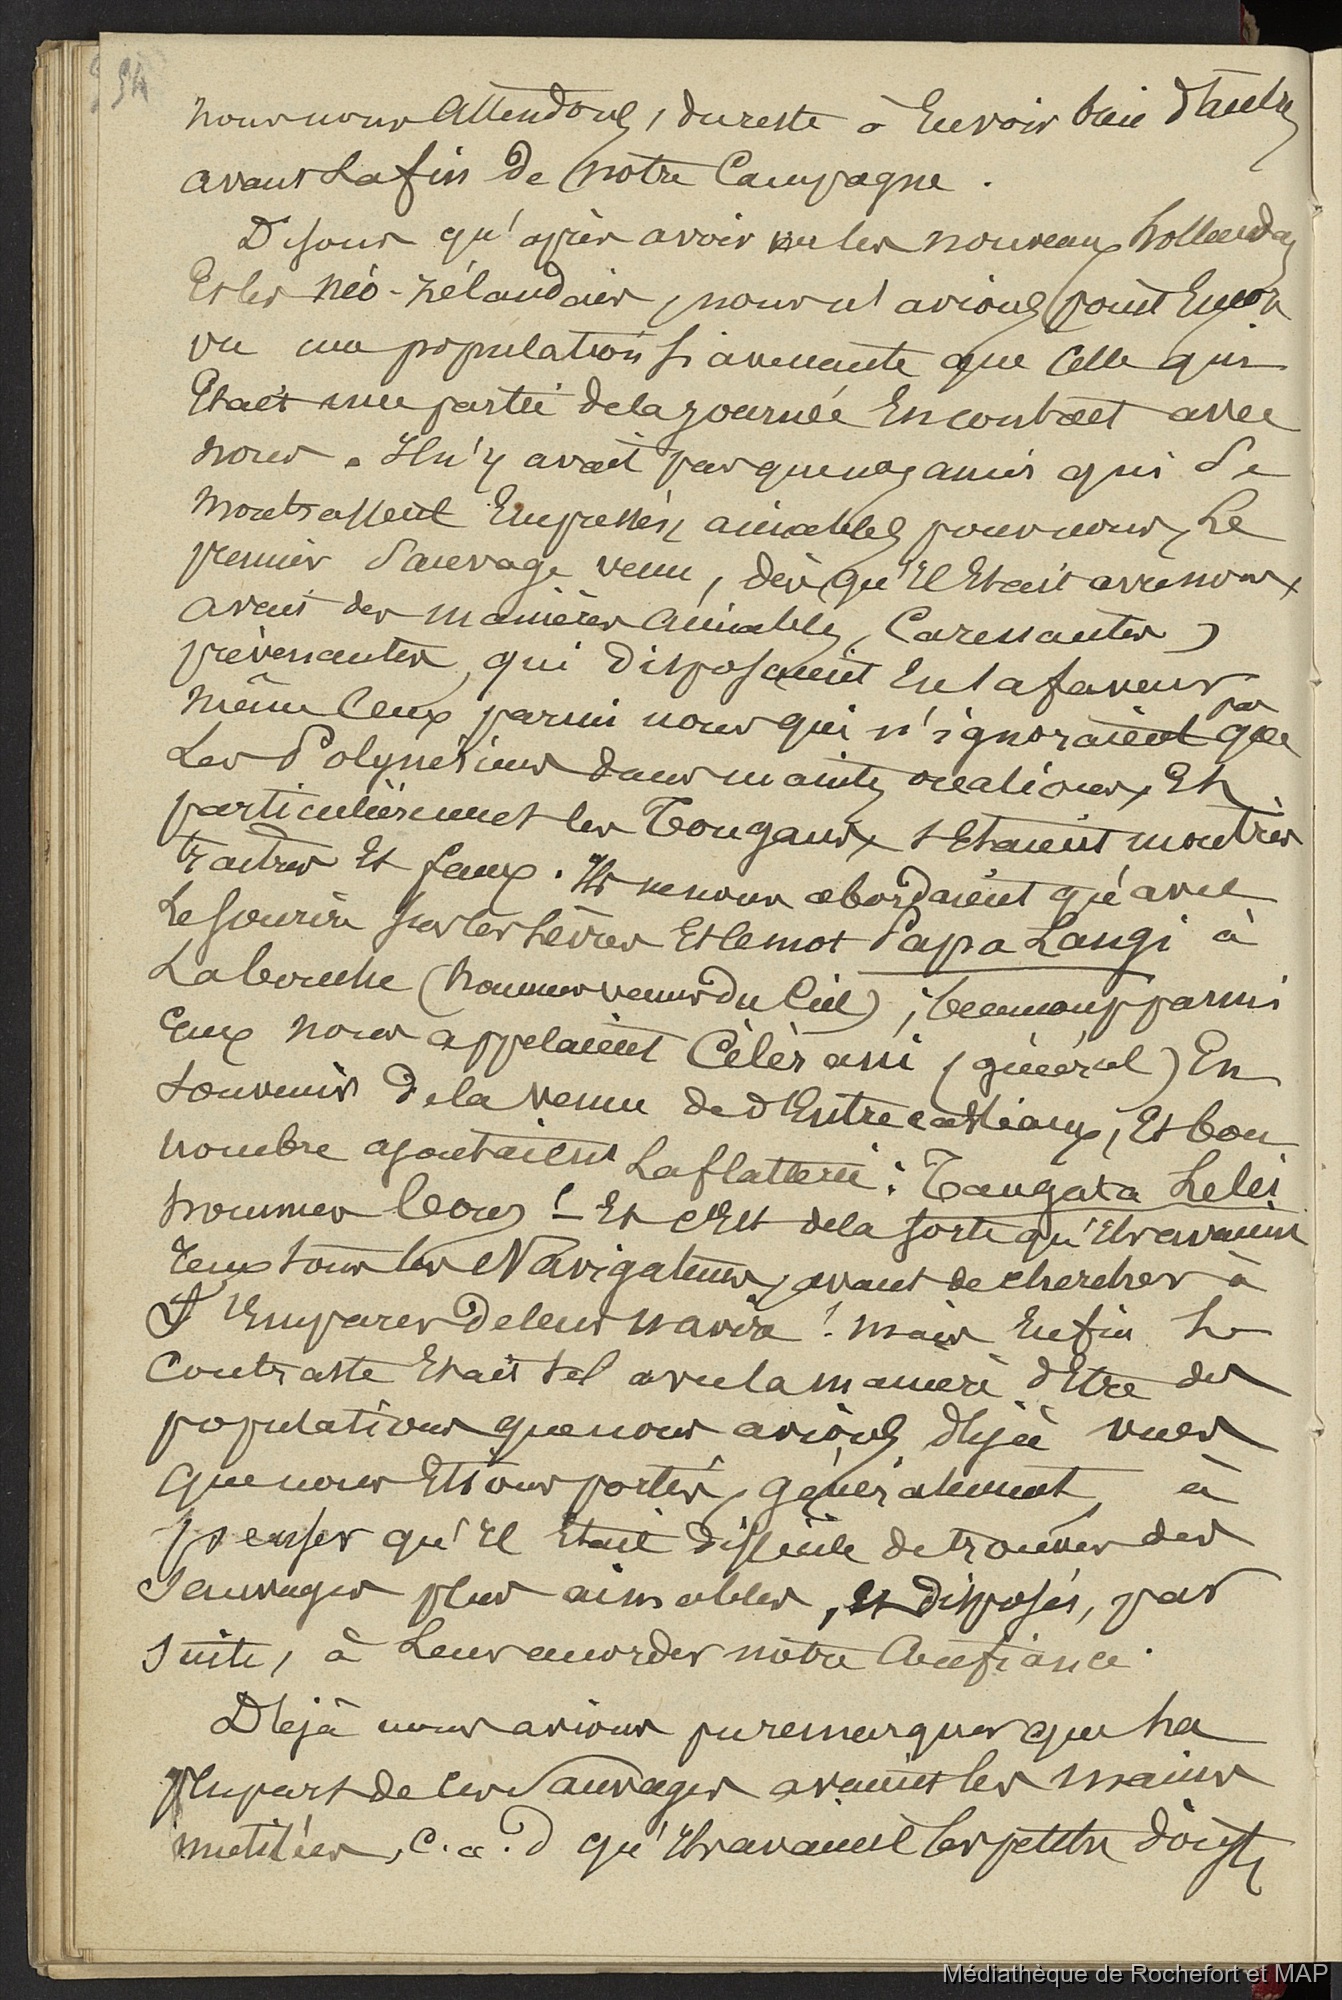 34
nous nous attendons, du reste à En voir bien d'autres
avant la fin de notre Campagne.
Disons qu'après avoir vu les nouveaux hollandais
Et les Néo-Zélandais, nous n'avions point Encore
vu une population si avenante que celle qui
Etait une partie de la journée En contact avec
nous. Il n'y avait pas que nos amis qui se
montrassent Empressés, aimables pour nous, Le
premier Sauvage venu, dès qu'Il Etait avec nous,
avait des manières aimables, Caressantes,
prévenantes, qui disposaient En sa faveur
même Ceux parmi nous qui n'ignoraient pas que
Les Polynésiens dans maintes occasions, Et
particulièrement les Tongans, s'Etaient montrés
traîtres Et faux. Ils ne nous abordaient qu'avec
Le sourire sur les lèvres Et le mot Papa Langi à
La bouche (hommes venus du Ciel), beaucoup parmi
Eux nous appelaient Célérani (général) En
souvenir de la venue de d'Entrecasteaux, Et bon
nombre ajoutaient La flatterie: Tangata Lelei
hommes bons! - Et c'Est de la sorte qu'Ils avaient
reçu tous les Navigateurs, avant de chercher à
s'Emparer de leur navire! mais Enfin Le
Contraste Etait tel avec la manière d'Etre des
populations que nous avions déjà vues
que nous Etions portés, généralement, à
penser qu'Il Etait difficile de trouver des
Sauvages plus aimables, Et disposés, par
suite, à Leur accorder notre Confiance.
Déjà nous avions pu remarquer que La
plupart de ces Sauvages avaient les mains
mutilées, c. a. d qu'Ils avaient les petits doigts
Médiathèque de Rochefort et MAP